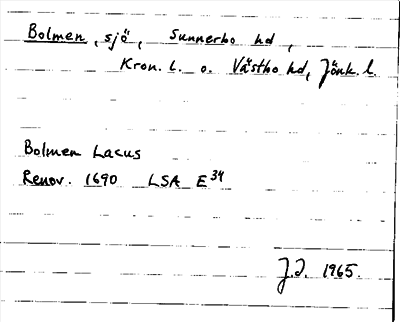 Bolmen, sjö, Sunnerbo hd,
Kron. l. o. Västbo hd, Jönk. l.
Bolmen Lacus
Renov. 1690 LSA E 34
J.I. 1965.